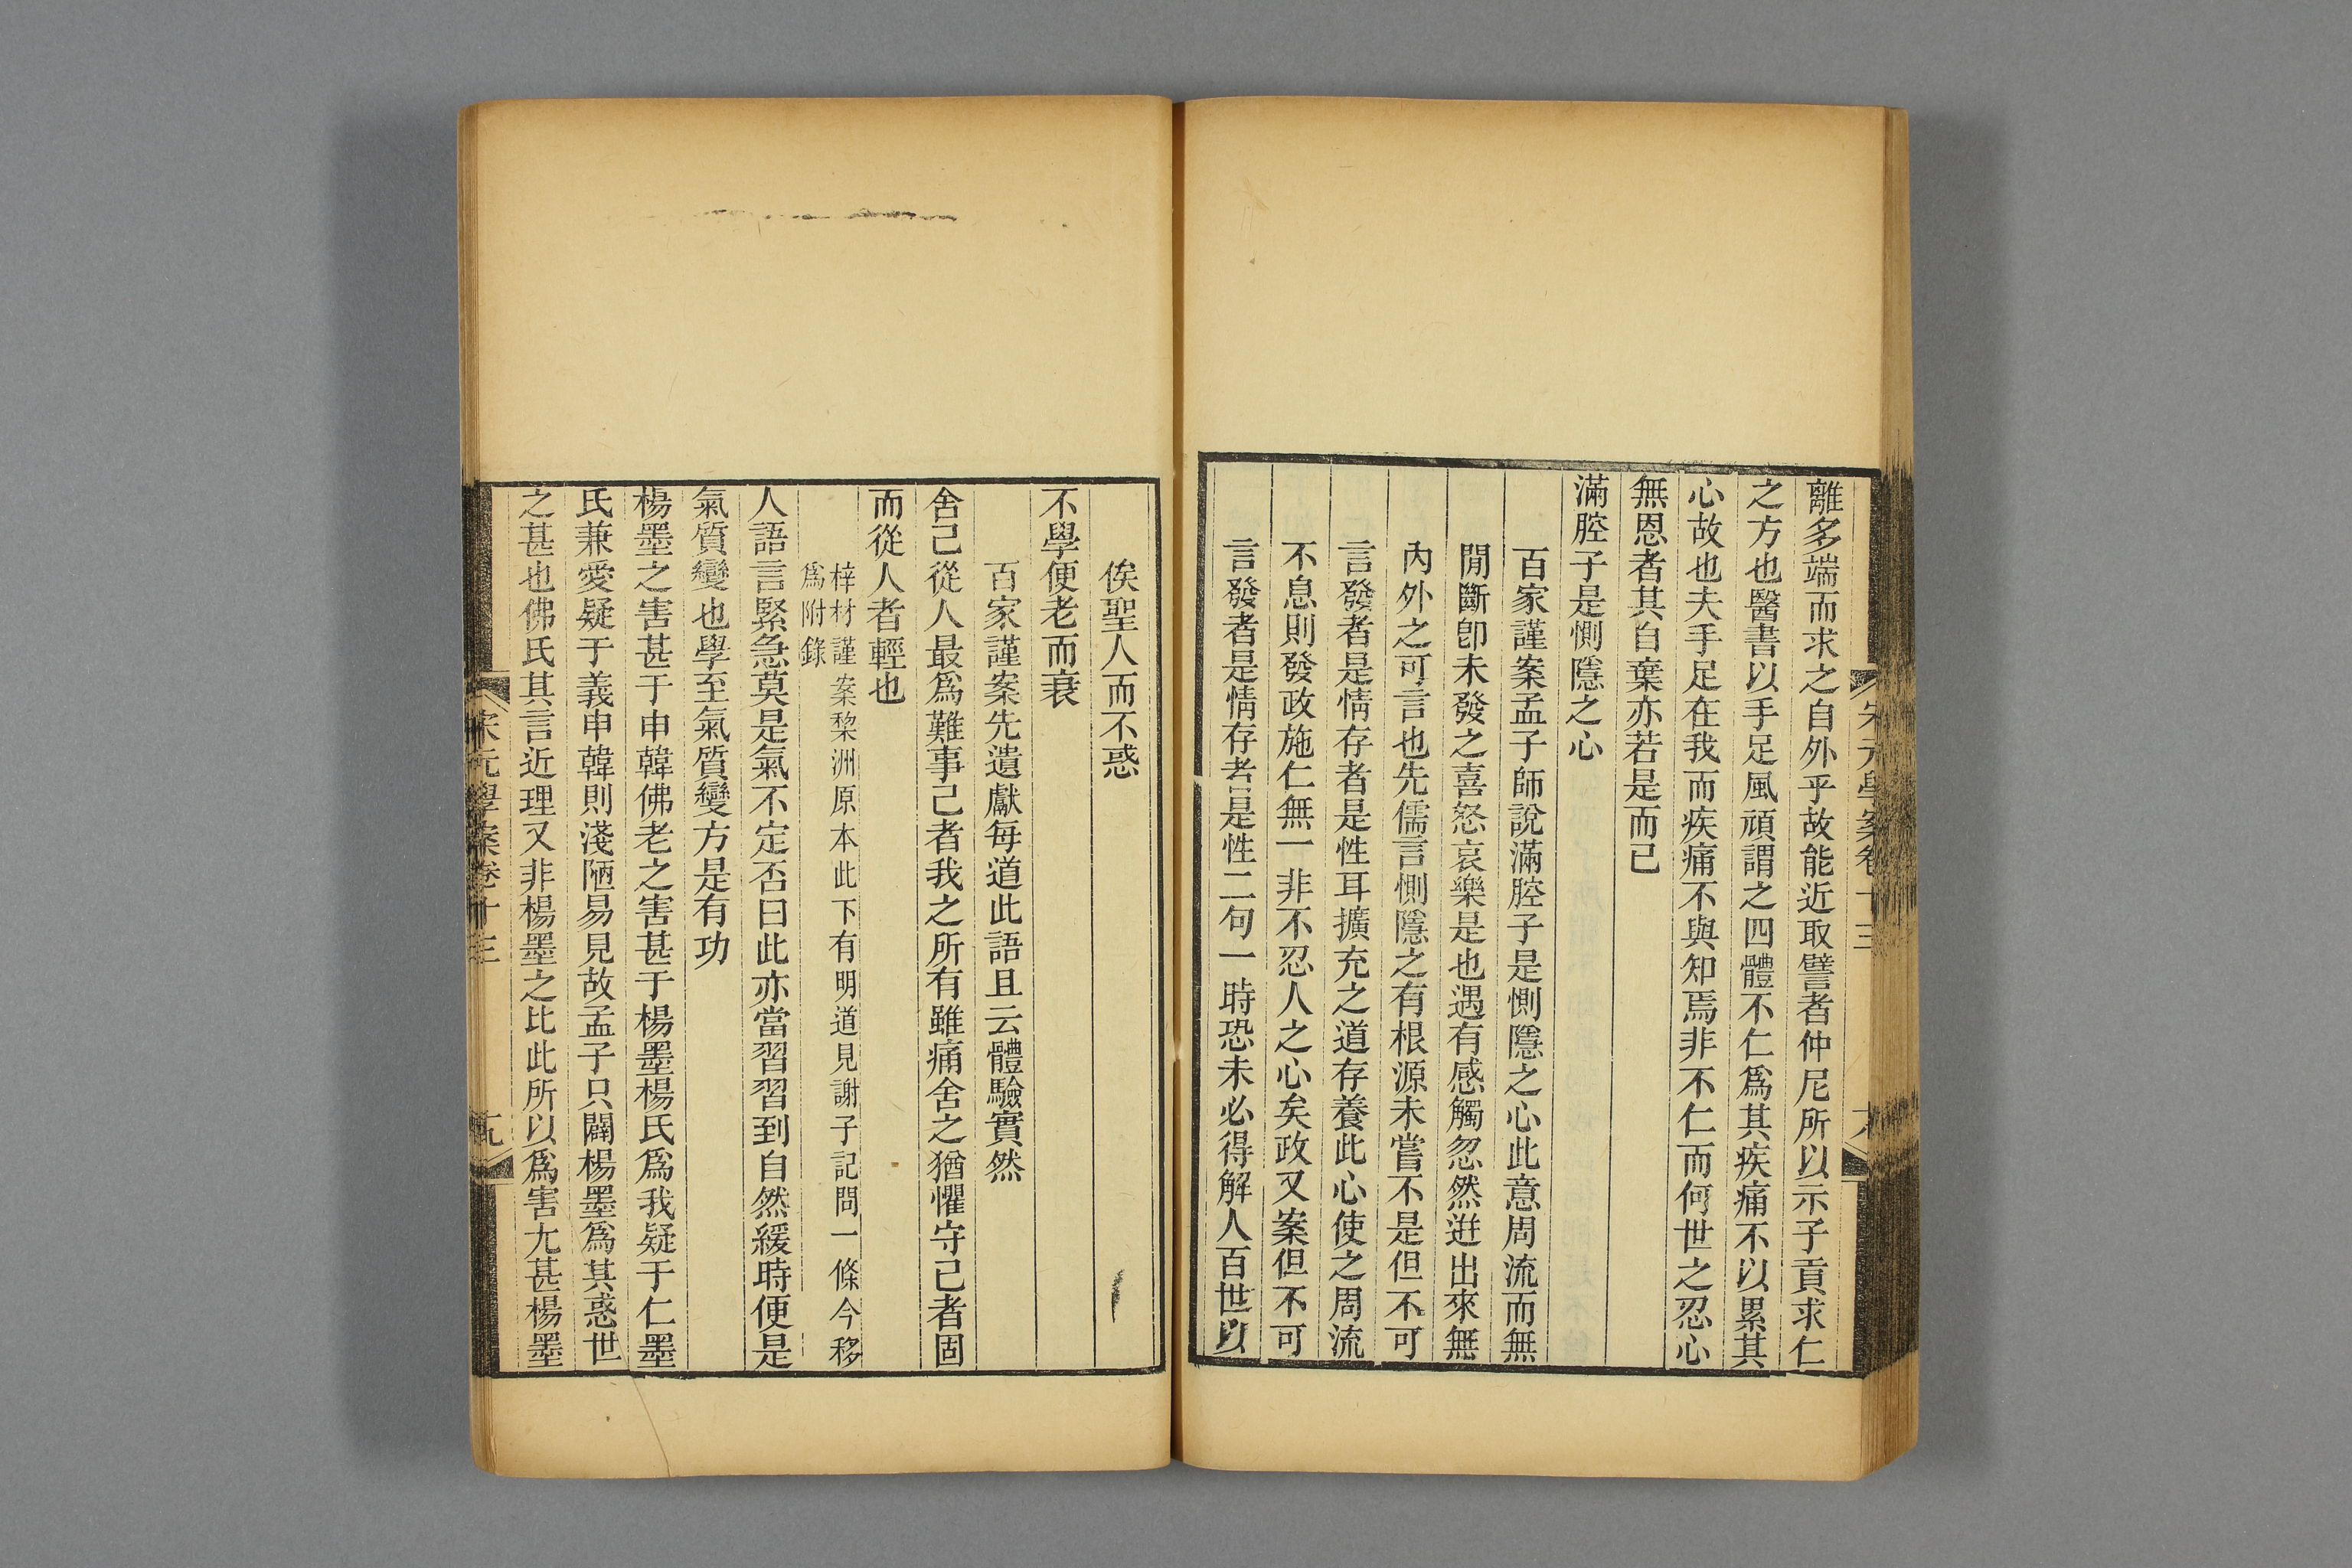 宋元學案卷十三
離多端而求之自外乎故能近取譬者仲尼所以示子貢求仁
之方也醫書以手足風頑謂之四體不仁爲其疾痛不以累其
心故也夫手足在我而疾痛不與知焉非不仁而何世之忍心
無恩者其自棄亦若是而已
滿腔子是惻隱之心
百家謹案孟子師說滿腔子是惻隱之心此意周流而無
閒斷卽未發之喜怒哀樂是也遇有感觸忽然迸出來無
內外之可言也先儒言惻隱之有根源未嘗不是但不可
言發者是情存者是性耳擴充之道存養此心使之周流
不息則發政施仁無一非不忍人之心矣政又案但不可
言發者是情存者是性二句一時恐未必得解人百世以
俟聖人而不惑
不學便老而衰
百家謹案先遺獻每道此語且云體驗實然
舍己從人最爲難事己者我之所有雖痛舍之猶懼守己者固
而從人者輕也
梓材謹案黎洲原本此下有明道見謝子記問一條今移
爲附錄
人語言緊急莫是氣不定否曰此亦當習習到自然緩時便是
氣質變也學至氣質變方是有功
楊墨之害甚于申韓佛老之害甚于楊墨楊氏爲我疑于仁墨
氏兼愛疑于義申韓則淺陋易見故孟子只闢楊墨爲其惑世
之甚也佛氏其言近理又非楊墨之比此所以爲害尢甚楊墨
宋元學案卷十三